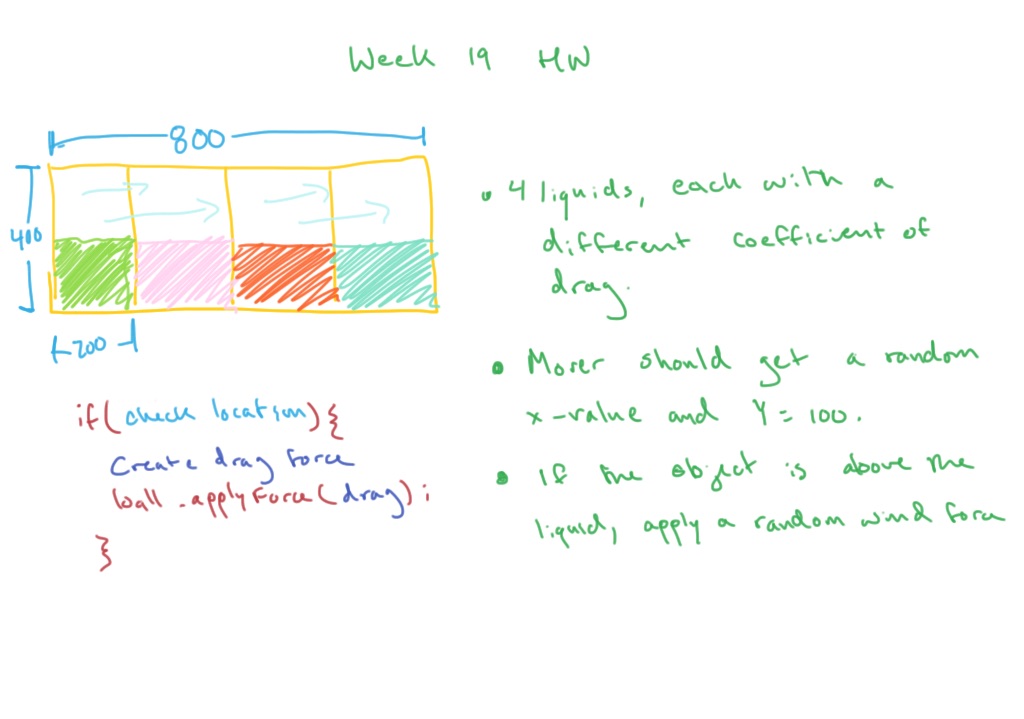 Week 19 HW
800
400
200
if(check location){
Create drag force
ball.applyForce(drag);
}
• 4 liquids, each with a
different coefficient of
drag.
• Mover should get a random
x-value and Y = 100.
• If the object is above the
liquid, apply a random wind force